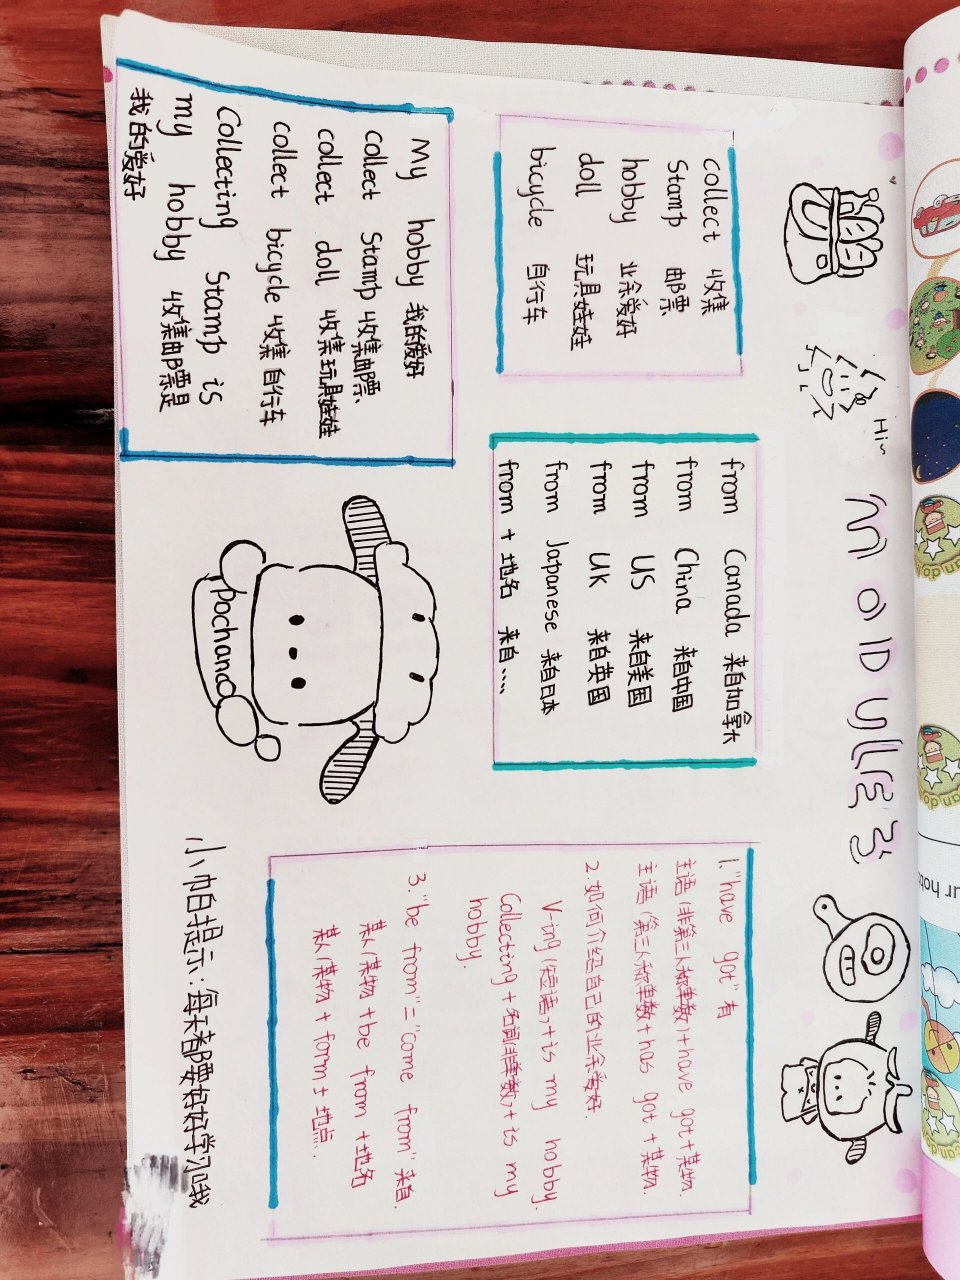 MODULE 3
Hi~
collect 收集
Stamp 邮票
hobby 业余爱好
doll 玩具娃娃
bicycle 自行车
My hobby 我的爱好
collect Stamp 收集邮票
collect doll 收集玩具娃娃
collect bicycle 收集自行车
Collecting Stamp is
my hobby 收集邮票是
我的爱好
from Canada 来自加拿大
from China 来自中国
from US 来自美国
from UK 来自英国
from Japanese 来自日本
from + 地名 来自....
Pochacco
1."have got"有
主语(非第三人称单数)+have got+某物.
主语(第三人称单数)+has got+某物.
2.如何介绍自己的业余爱好.
V-ing(短语)+is my hobby.
Collecting+名词(非单数)+is my
hobby.
3."be from"="come from"来自.
某人/某物+be from+地名
某人/某物+form+地点.
小帕提示:每天都要好好学习哦
ur hob